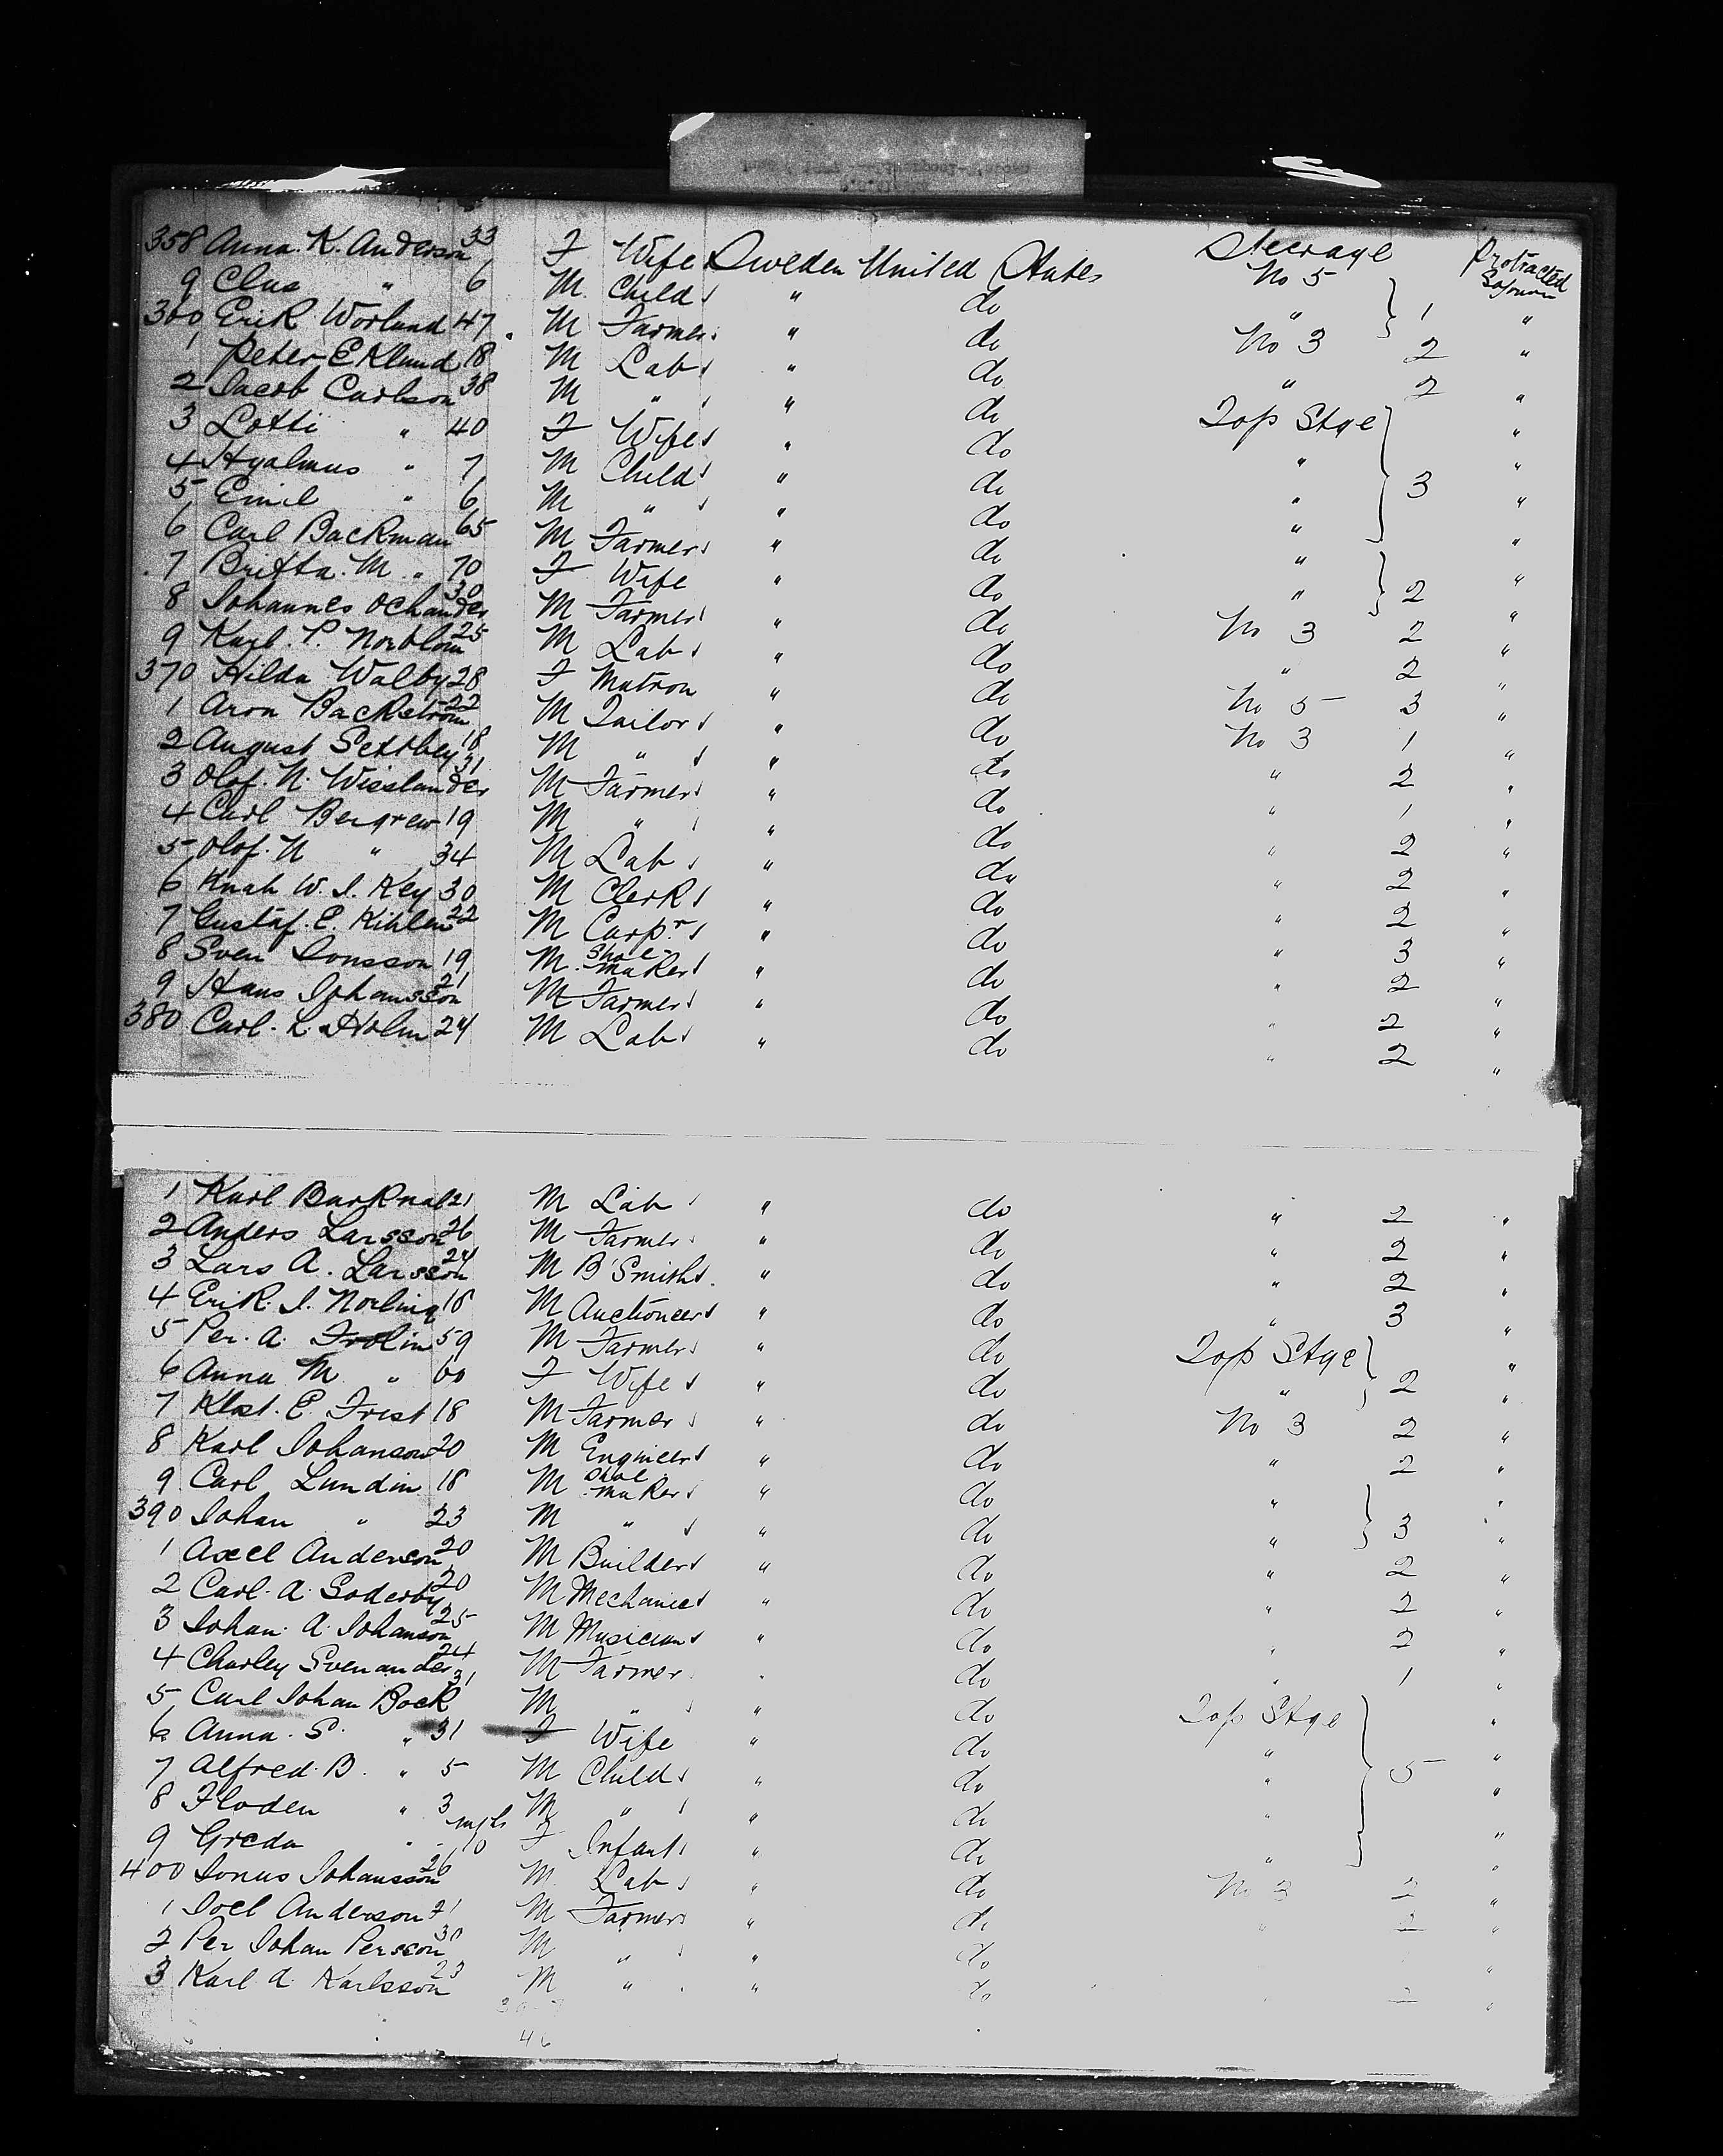 358 Anna. K. Anderson 33 F Wife Sweden United States Steerage No 5 Protracted Sojourn
9 Clas " 6 M. Child " do " } 1 "
360 Erik Worlund 47 M Farmer " do No 3 2 "
1 Peter Eklund 18 M Lab " do " 2 "
2 Jacob Carlson 38 M " " do Top Stge "
3 Lotti " 40 F Wife " do " "
4 Hyalmus " 7 M Child " do " } 3 "
5 Emil " 6 M " " do " "
6 Carl Backman 65 M Farmer " do " "
7 Britta. M " 70 F Wife " do " } 2 "
8 Johannes Ochander 30 M Farmer " do No 3 2 "
9 Karl. P. Norblom 25 M Lab " do " 2 "
370 Hilda Walby 28 F Matron " do No 5 3 "
1 Aron Backstrom 22 M Tailor " do No 3 1 "
2 August 18 M " " do " 2 "
3 Olof. N. Wisslander 31 M Farmer " do " 1 "
4 Carl Bergrew 19 M " " do " 2 "
5 Olof. N " 34 M Lab " do " 2 "
6 W. J. Key 30 M Clerk " do " 2 "
7 Gustaf. E. Kihlen 22 M Carpr " do " 3 "
8 Sven Jonsson 19 M Shoe-maker " do " 2 "
9 Hans Johansson 21 M Farmer " do " 2 "
380 Carl. L. Holm 24 M Lab " do " 2 "
1 Karl 21 M Lab " do " 2 "
2 Anders Larsson 26 M Farmer " do " 2 "
3 Lars A. Larsson 24 M B'Smith " do " 2 "
4 Erik. J. Norling 18 M Auctioneer " do " 3 "
5 Per. A. Frolin 59 M Farmer " do Top Stge "
6 Anna M " 60 F Wife " do " } 2 "
7 Klst. E. Frist 18 M Farmer " do No 3 2 "
8 Karl Johanson 20 M Engineer " do " 2 "
9 Carl Lundin 18 M Shoe-maker " do " "
390 Johan " 23 M " " do " } 3 "
1 Axel Anderson 20 M Builder " do " 2 "
2 Carl. A. Soderby 20 M Mechanic " do " 2 "
3 Johan. A. Johanson 25 M Musician " do " 2 "
4 Charley Svenander 24 M Farmer " do " 1 "
5 Carl Johan Bock 31 M " " do Top Stge "
6 Anna. S. " 31 F Wife " do " "
7 Alfred. B. " 5 M Child " do " } 5 "
8 Floden " 3 M " " do " "
9 Greda " mths 10 F Infant " do " "
400 Jonas Johansson 26 M Lab " do No 3 2 "
1 Joel Anderson 21 M Farmer " do " 2 "
2 Per Johan Persson 30 M " " do "
3 Karl A. Karlsson 23 M " " do 2 "
46